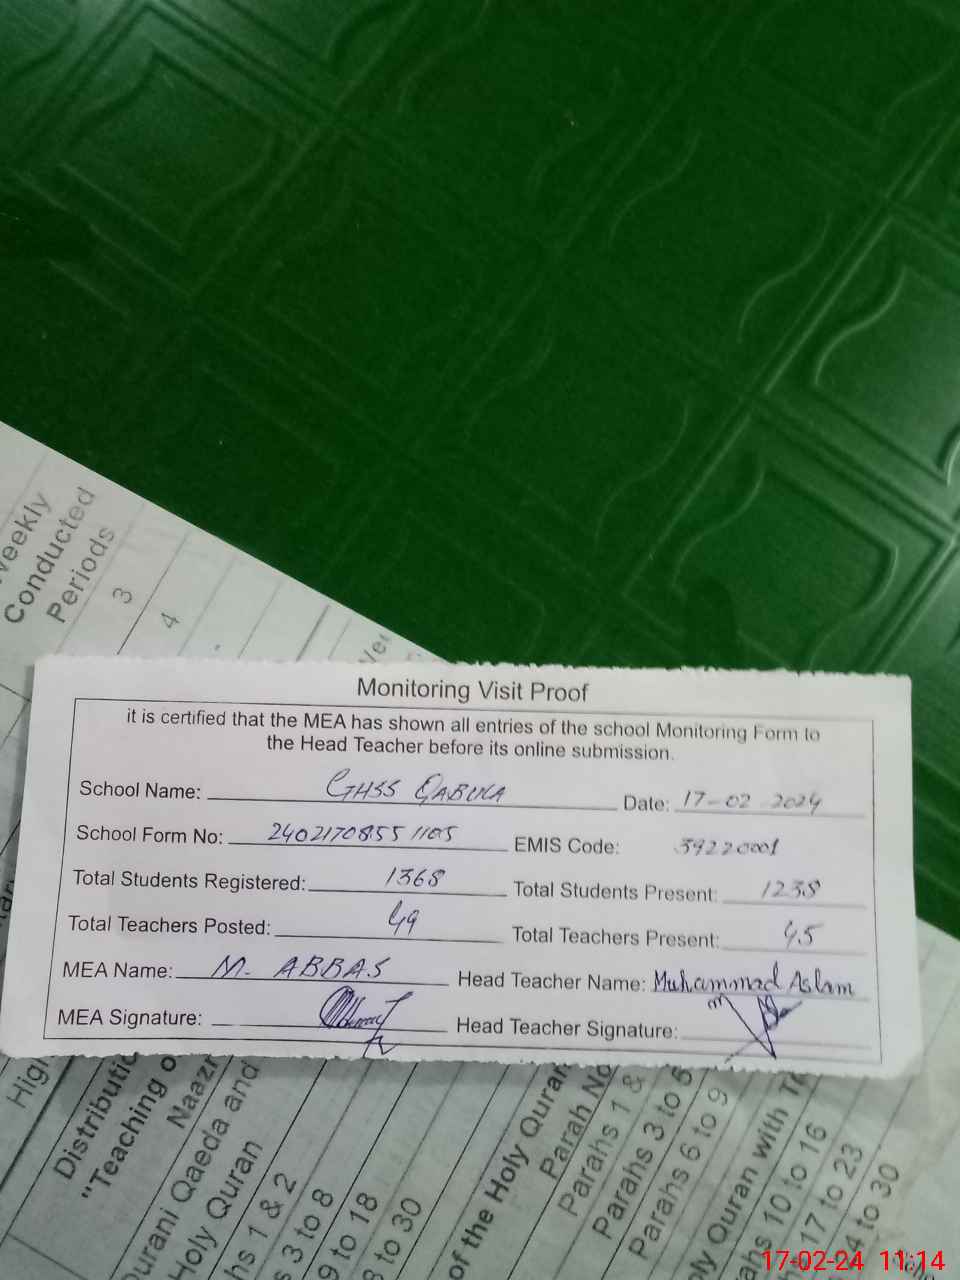 Weekly
Conducted
Periods
3
4
Monitoring Visit Proof
it is certified that the MEA has shown all entries of the school Monitoring Form to
the Head Teacher before its online submission.
School Name: GHSS QABULA Date: 17-02 2024
School Form No: 2402170855 1105 EMIS Code: 39220001
Total Students Registered: 1368 Total Students Present: 1238
Total Teachers Posted: 49 Total Teachers Present: 45
MEA Name: M. ABBAS Head Teacher Name: Muhammad Aslam
MEA Signature: Head Teacher Signature:
"Teaching o
Holy Quran
hs 1 & 2
s 3 to 8
9 to 18
8 to 30
of the Holy Quran
Parah No
Parahs 1 &
Parahs 3 to 5
Parahs 6 to 9
oly Quran with Tr
ahs 10 to 16
17 to 23
4 to 30
17-02-24 11:14